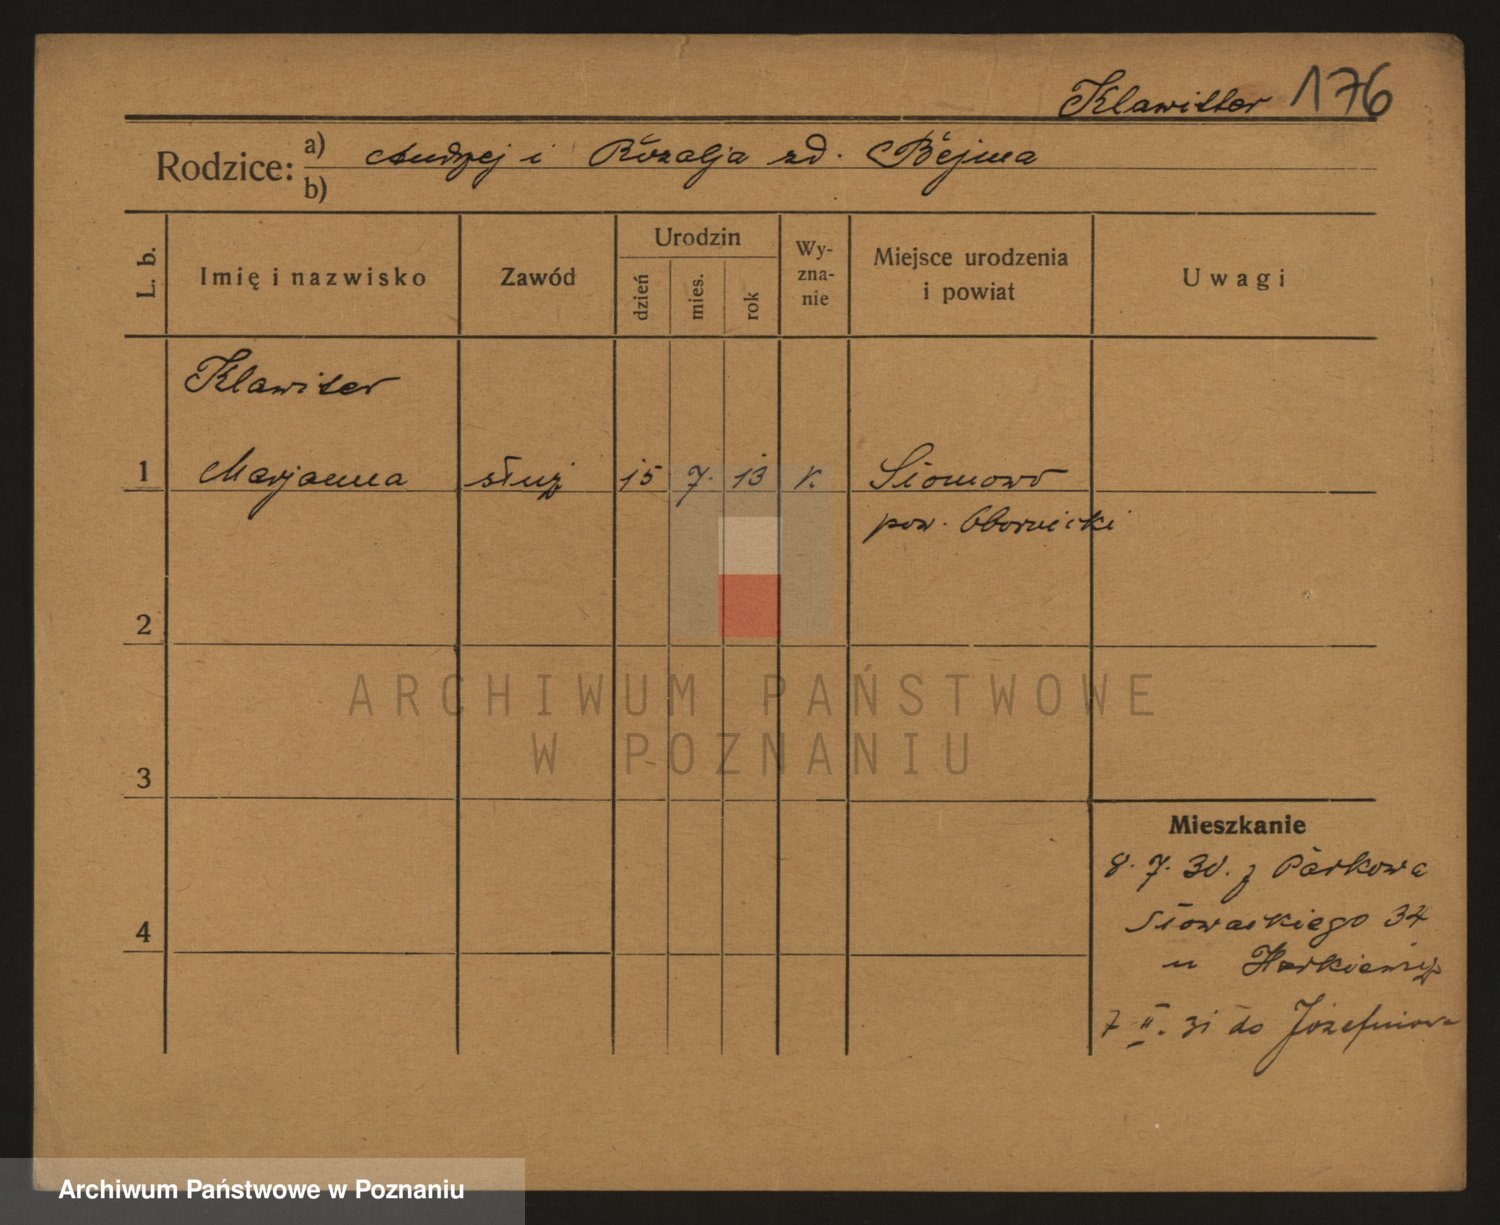 Klawitter 176
Rodzice: a) Andrzej i Rozalja zd. Bejma
b)
L. b. Imię i nazwisko Zawód Urodzin dzień mies. rok Wy-zna-nie Miejsce urodzenia i powiat Uwagi
Klawiter
1 Marjanna służ 15 7. 13 r. Słomowo
pow. Obornicki
2
ARCHIWUM PAŃSTWOWE
W POZNANIU
3
Mieszkanie
8. 7. 30. z Parkowa
4 Słowackiego 34
u
7 II. 31 do Józefinowa
Archiwum Państwowe w Poznaniu